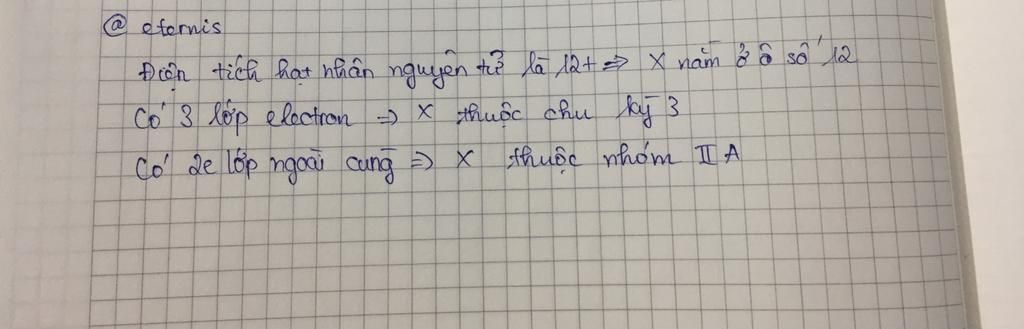 @ eternis
Điện tích hạt nhân nguyên tử là 12+ => X nằm ở ô số 12
Có 3 lớp electron => X thuộc chu kỳ 3
Có 2e lớp ngoài cùng => X thuộc nhóm II A